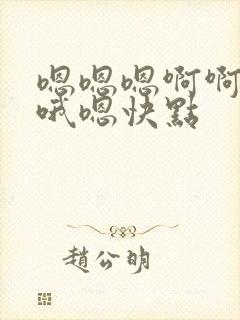 嗯嗯嗯啊啊
哦嗯快點
趙公明